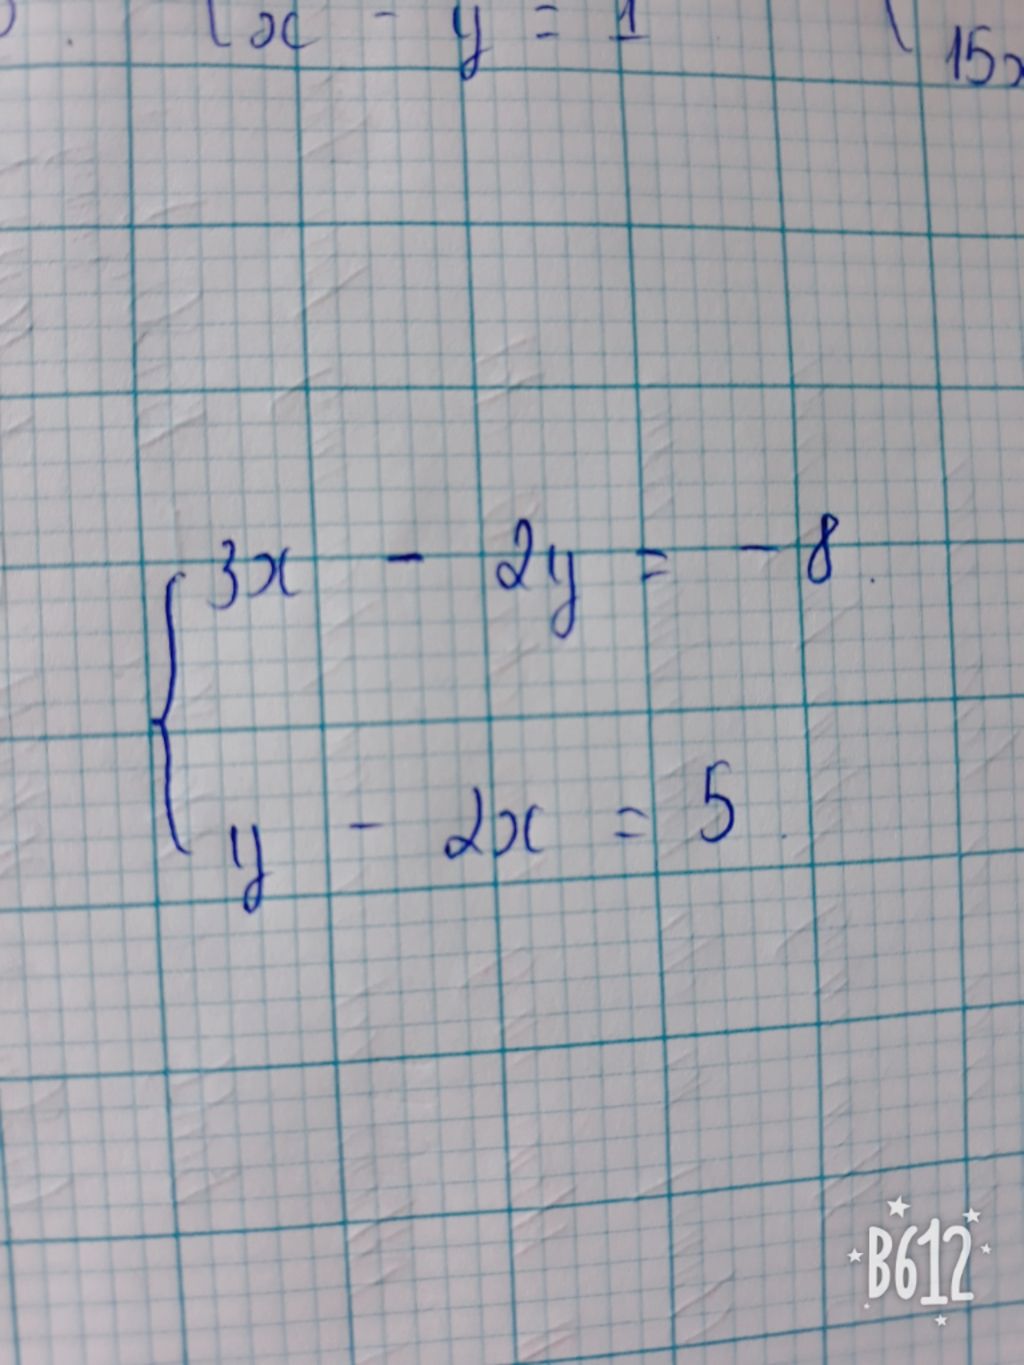 x - y = 1
15x
3x - 2y = - 8.
y - 2x = 5.
B612